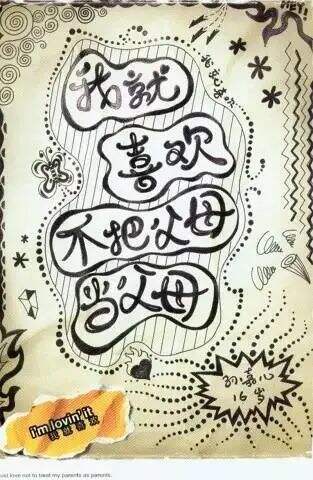 HEY!
我就喜欢
我就
喜欢
不把父母
当父母
孙嘉心
16岁
i'm lovin' it
我就喜欢
just love not to treat my parents as parents.